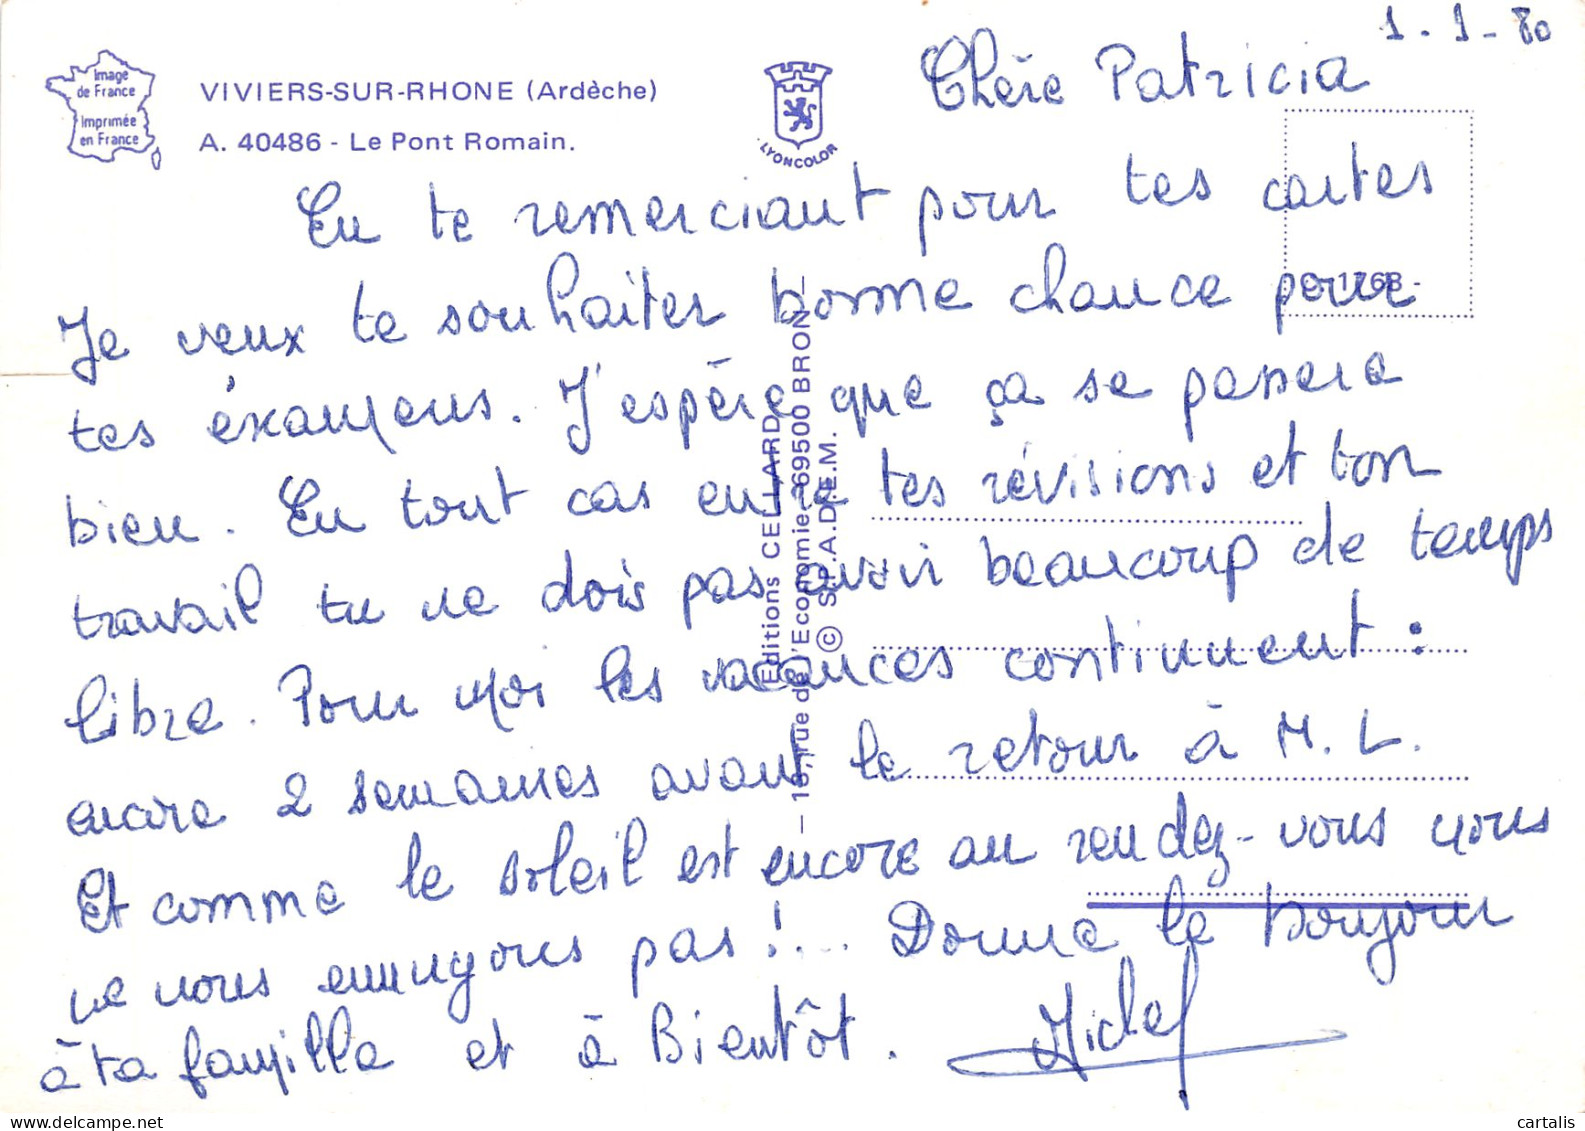 1.1-80
Chère Patricia
Image
de France
Imprimée
en France
VIVIERS-SUR-RHONE (Ardèche)
A. 40486 - Le Pont Romain.
LYONCOLOR
En te remerciant pour tes cartes
Je veux te souhaiter bonne chance pour
tes éxamens. J'espère que ça se passera
bien. En tout cas entre tes révisions et ton
travail tu ne dois pas avoir beaucoup de temps
libre. Pour moi les vacances continuent :
encore 2 semaines avant le retour à M.L.
Et comme le soleil est encore au rendez-vous nous
ne nous ennuyons pas !... Donne le bonjour
à ta famille et à Bientôt. Michel
Editions CELLARD
69500 BRON
© S.P.A.D.E.M.
delcampe.net
cartalis